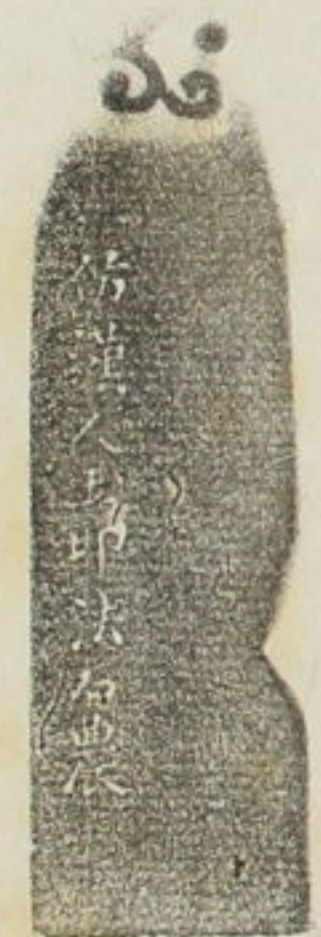 仿漢人鑄印法石農